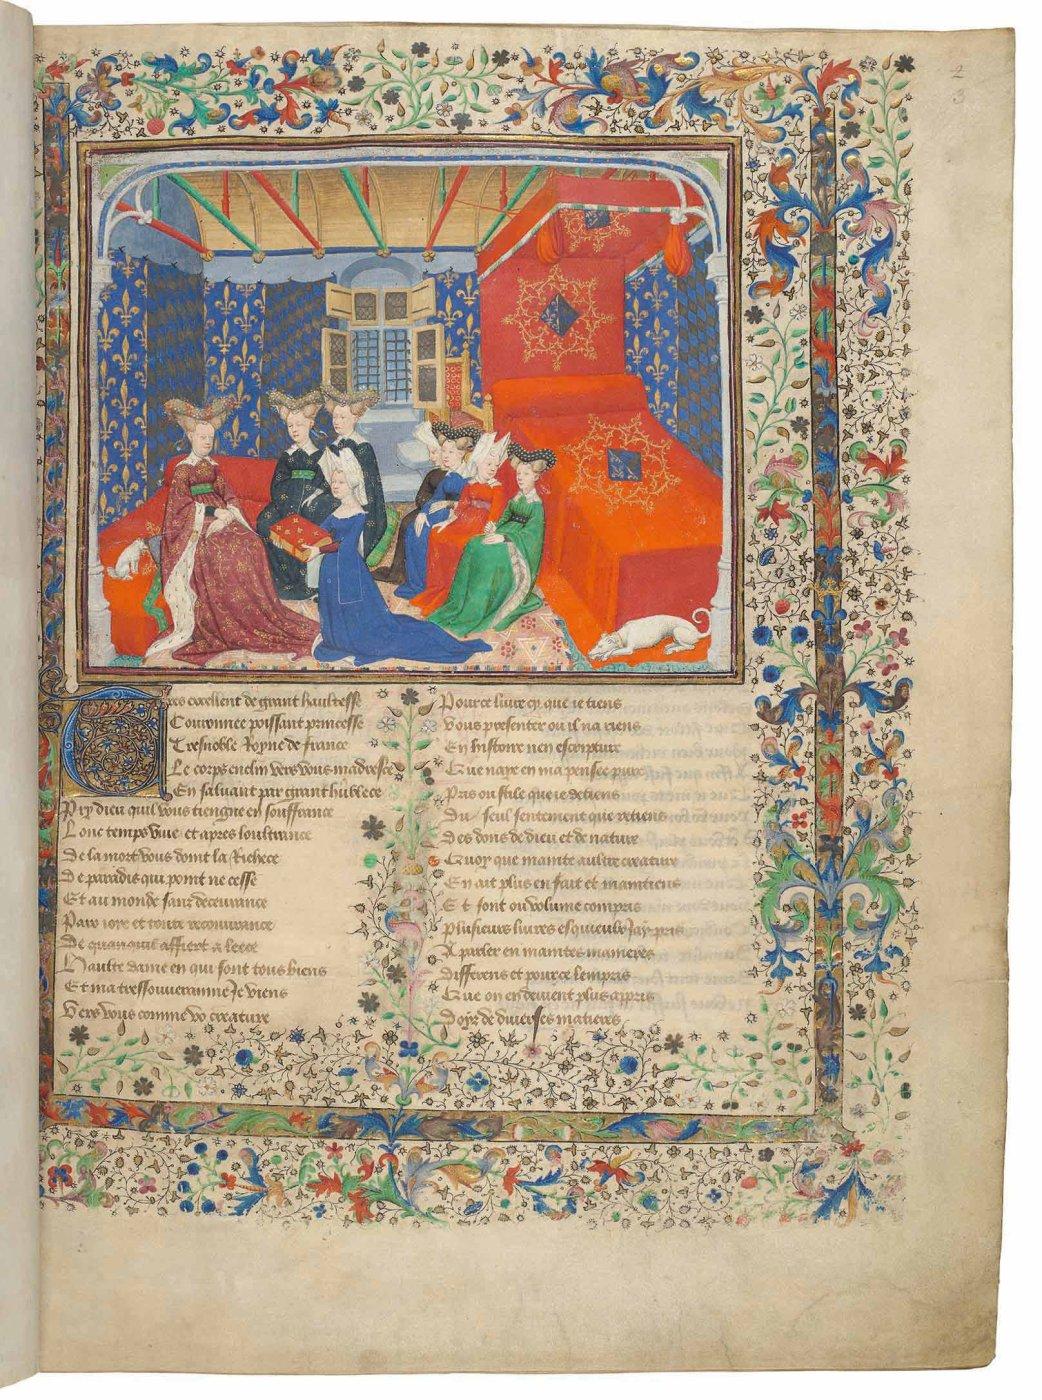 2
3
Tres excellent de grant haultesse
Couronnee poissant princesse
Tres noble Royne de france
Le corps enclin vers vous madresce
En saluant par grant humblece
Pry dieu quil vous tiengne en souffrance
Lonc temps viue et apres loultrance
De la mort vous doint la Richece
De paradis qui point ne cesse
Et au monde sanz decevrance
Paix ioye et toute recouvrance
De quanquil affiert a leece
Haulte dame en qui sont tous biens
Et ma tressouverainne Je viens
Vers vous comme vo creature
Pour ce livre cy que ie tiens
Vous presenter ou il na riens
En histoire nen escripture
Que naye en ma pensee pure
Pris ou stile que ie detiens
Du seul sentement que retiens
Des dons de dieu et de nature
Quoy que mainte aultre creature
En ait plus en fait et maintiens
Et sont ou volume compris
Plusieurs livres esquieulx Jay pris
A parler en maintes manieres
Differens et pour ce lempris
Que on en devient plus appris
Doyr de diverses matieres